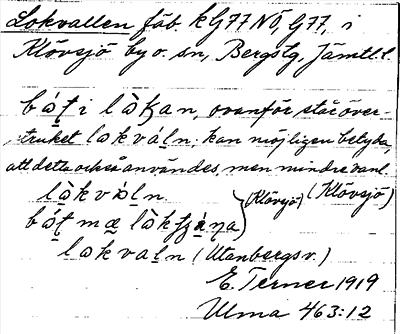 Lokvallen fäb. k G77 NÖ, G77, i
Klövsjö by o. sn, Bergs tg, Jämtl. l.
bάt i lὰkan, ovanför står över-
struket lɑkváln. kan möjligen betyda,
att detta också användes, men mindre vanl.
lὰkvὰln. (Klövsjö)
bάt mæ (Klövsjö)
lɑkvɑln (Utanbergsv.)
E. Terner 1919
Ulma 463:12